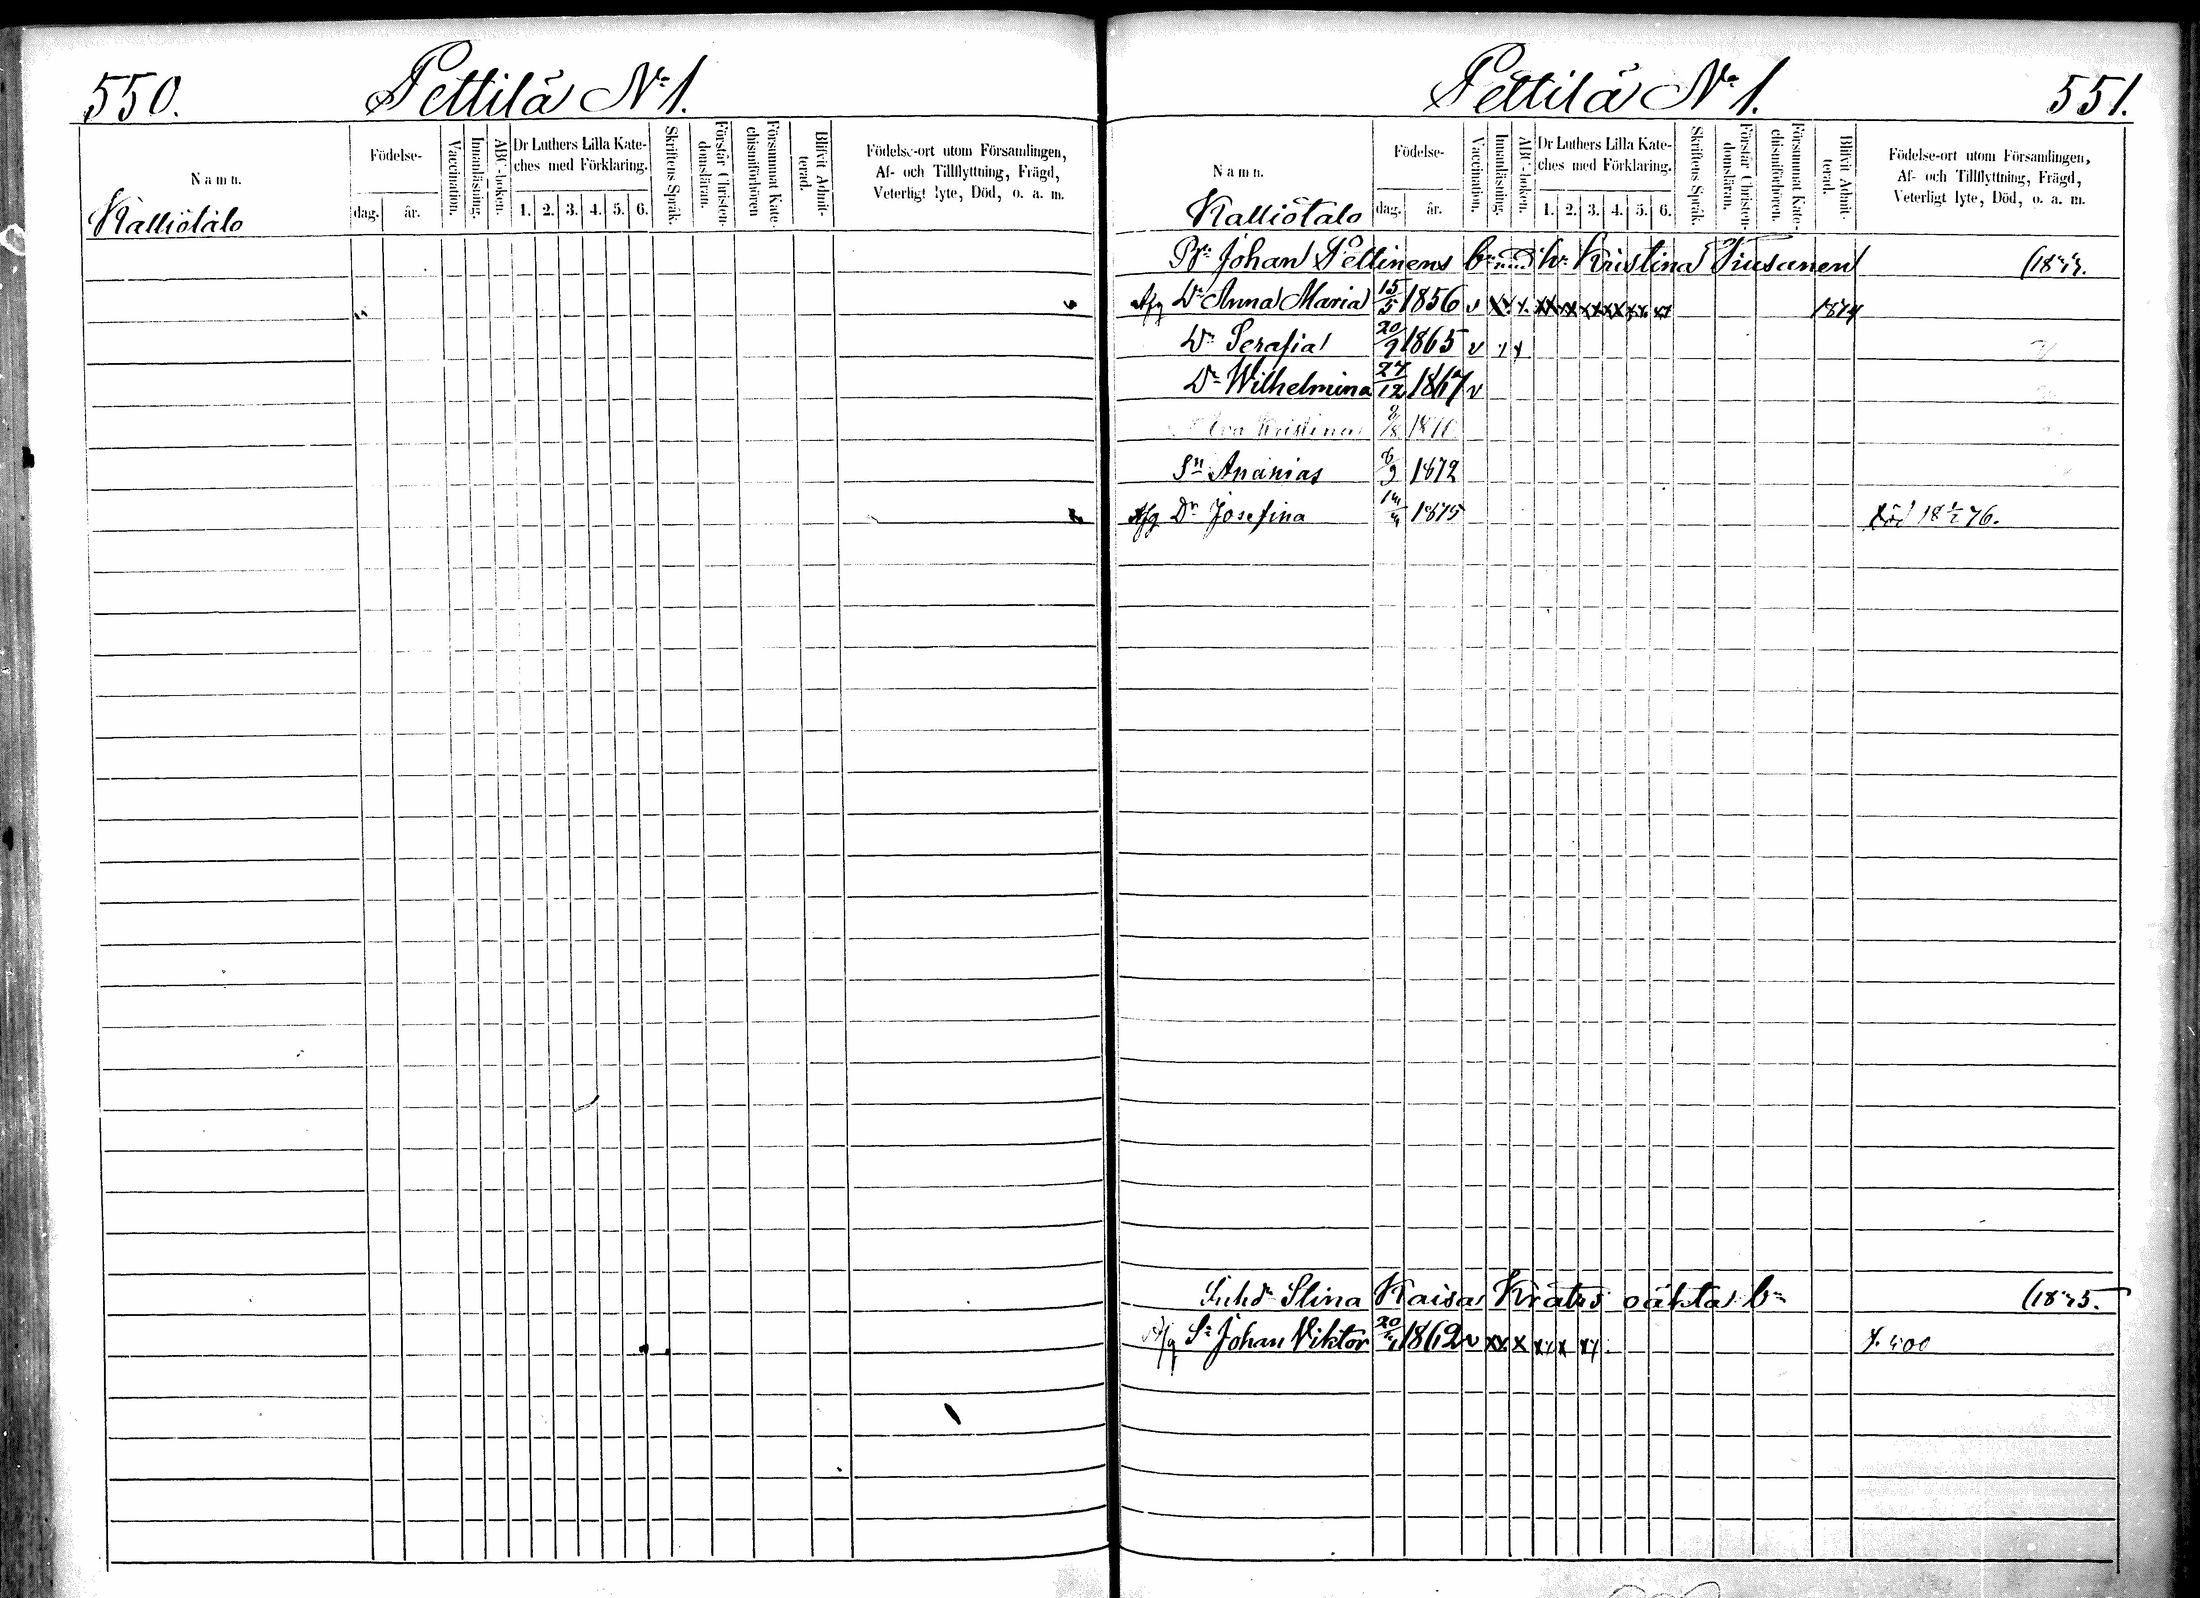 550. Pettilä No 1.
Namn.
Födelse-
dag. år.
Vaccination.
Innanläsning.
ABC-boken.
Dr Luthers Lilla Kate-
ches med Förklaring.
1. 2. 3. 4. 5. 6.
Skriftens Språk.
Förstår Christen-
domsläran.
Försummat Kate-
chismiförhören
Blifvit Admit-
terad.
Födelse-ort utom Församlingen,
Af- och Tillflyttning, Frägd,
Veterligt lyte, Död, o. a. m.
Kalliotalo
Pettilä No 1. 551.
Namn.
Födelse-
dag. år.
Vaccination.
Innanläsning.
ABC-boken.
Dr Luthers Lilla Kate-
ches med Förklaring.
1. 2. 3. 4. 5. 6.
Skriftens Språk.
Förstår Christen-
domsläran.
Försummat Kate-
chismiförhören.
Blifvit Admit-
terad.
Födelse-ort utom Församlingen,
Af- och Tillflyttning, Frägd,
Veterligt lyte, Död, o. a. m.
Kalliotalo
Johan Pettinens bn med h: Kristina
Afg Dr Anna Maria 15/5 1856 v
Dr Serafia 20/9 1865 v
Dr Wilhelmina 27/12 1867 v
Eva Kristina
Sn Ananias 6/9 1872
Afg Dr Josefina 1875 Död 18 1/2 76.
Stina Kaisa oäkta bn
Afg Sn Johan Viktor 1862 v